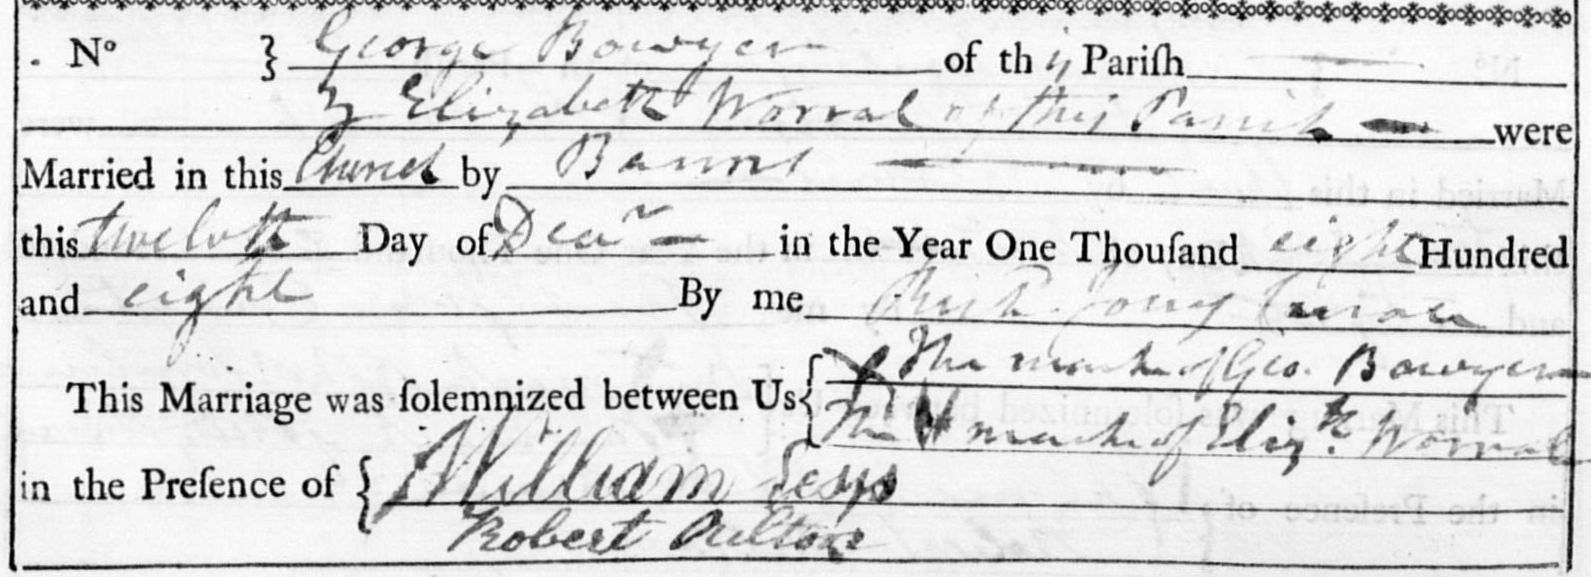 . No } George Bowyer of this Pariſh
& Elizabeth Worral of this Parish were
Married in this Church by Banns
this twelvth Day of Decr in the Year One Thouſand eight Hundred
and eight By me Curate
This Marriage was ſolemnized between Us { X The mark of Geo. Bowyer
The mark of Elizth Worral
in the Preſence of { William
Robert